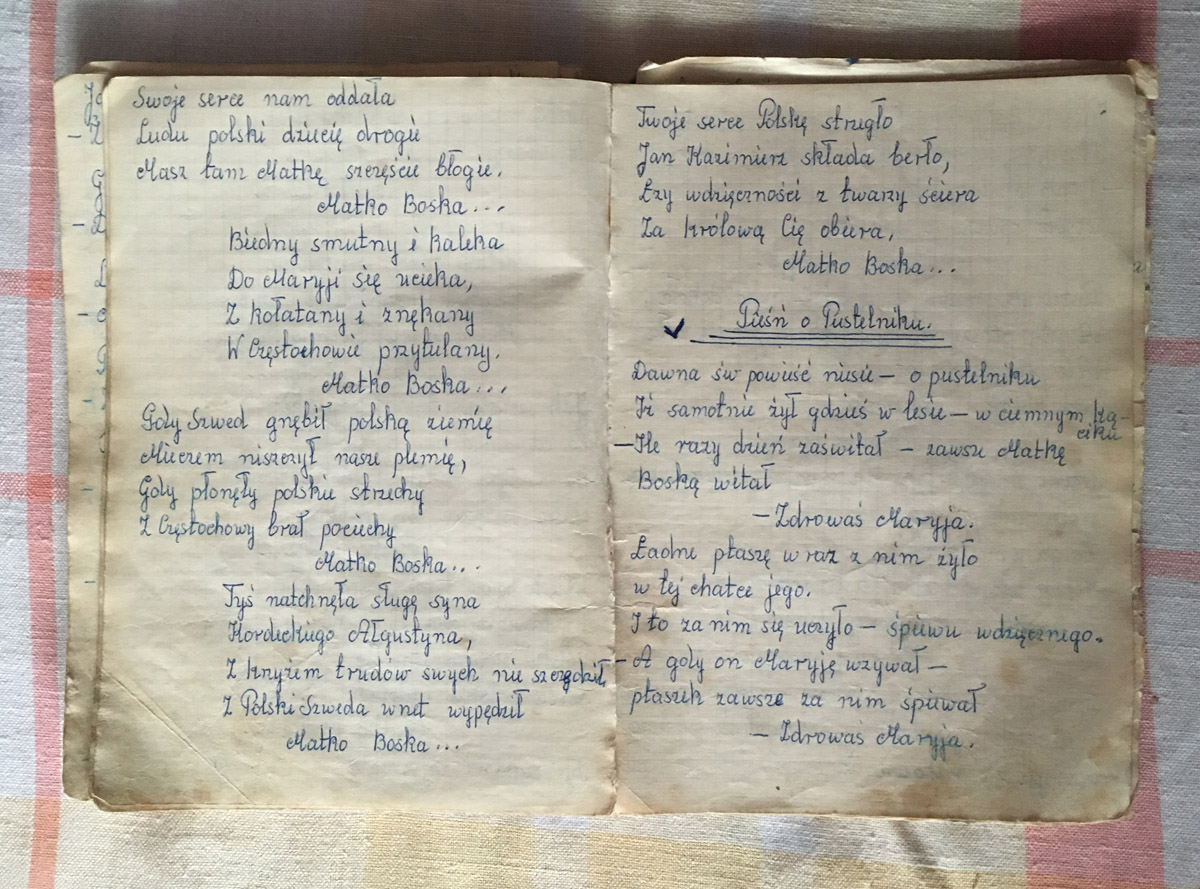 Swoje serce nam oddała
Ludu polski dziecię drogie
Masz tam Matkę szczęście błogie.
Matko Boska...
Biedny smutny i kaleka
Do Maryji się ucieka,
Z kołatany i znękany
W Częstochowie przytulany.
Matko Boska...
Gdy Szwed gnębił polską ziemię
Mieczem niszczył nasze plemię,
Gdy płonęły polskie strzechy
Z Częstochowy brał pociechy
Matko Boska...
Tyś natchnęła sługę syna
Kordeckiego Ałgustyna,
Z knyżem trudów swych nie szczędził
Z Polski Szweda wnet wypędził
Matko Boska...
Twoje serce Polskę strzegło
Jan Kazimierz składa berło,
Łzy wdzięczności z twarzy ściera
Za królową Cię obiera,
Matko Boska...
Pieśń o Pustelniku.
Dawna św powieść niesie — o pustelniku
Iż samotnie żył gdzieś w lesie — w ciemnym ką-
ciku
— Ile razy dzień zaświtał — zawsze Matkę
Boską witał
— Zdrowaś Maryja.
Ładne ptaszę w raz z nim żyło
w tej chatce jego.
I to za nim się uczyło — śpiewu wdzięcznego.
— A gdy on Maryję wzywał —
ptaszek zawsze za nim śpiewał
— Zdrowaś Maryja.